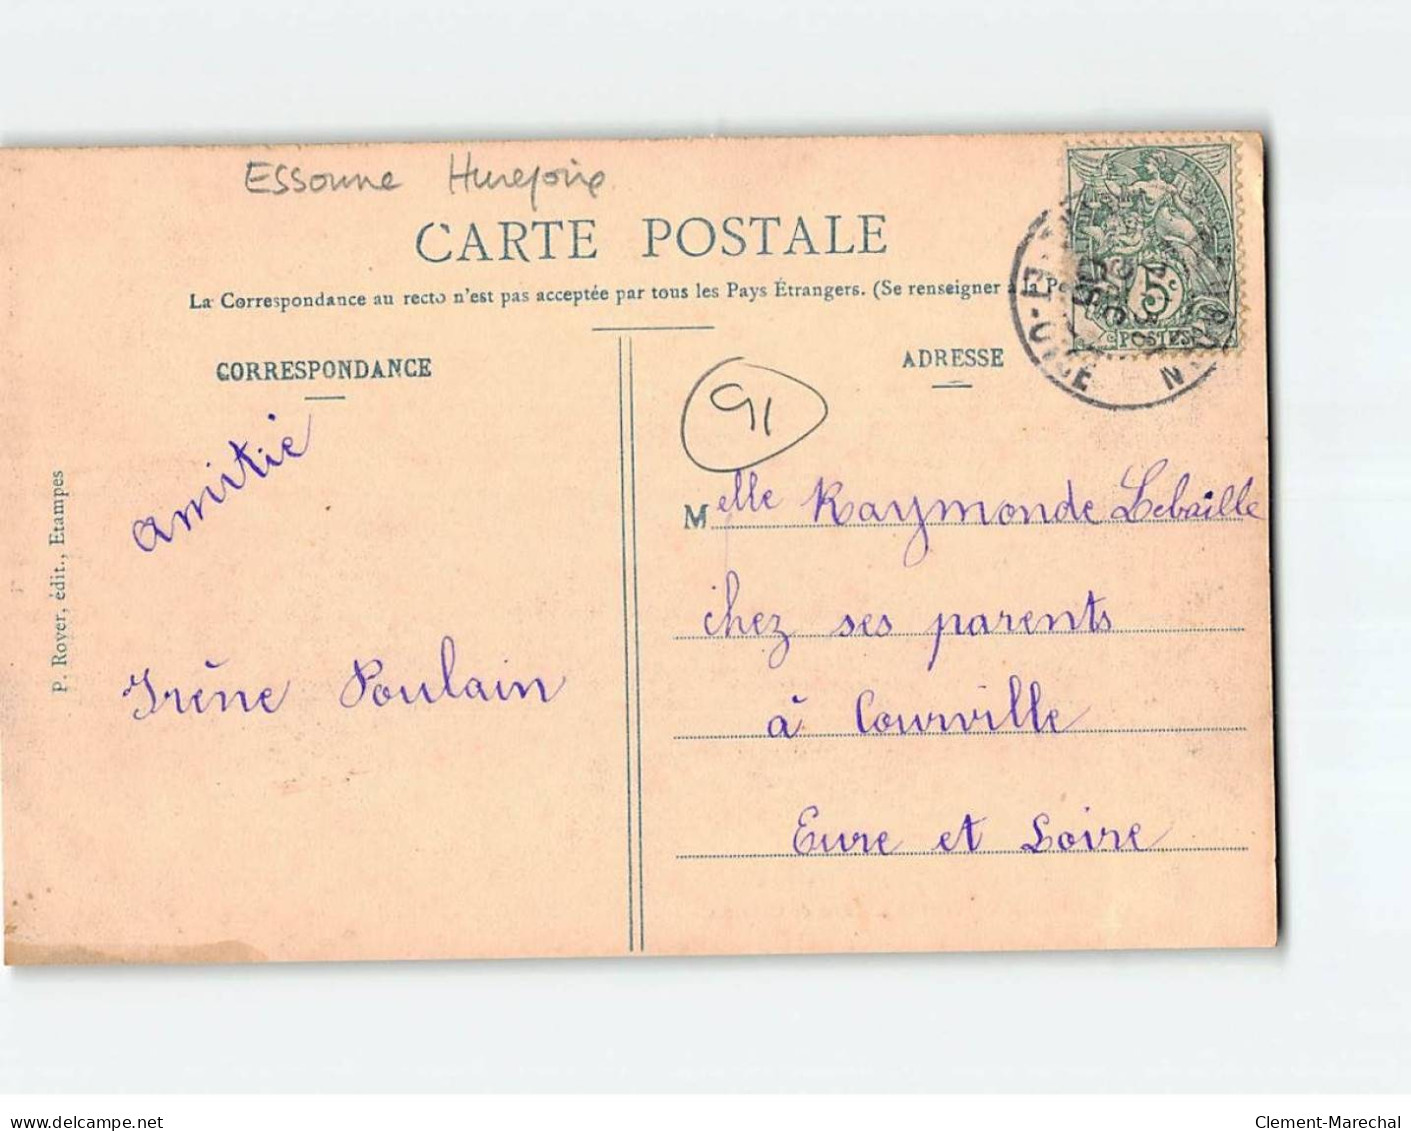 Essonne Hurepoix
CARTE POSTALE
La Correspondance au recto n'est pas acceptée par tous les Pays Étrangers. (Se renseigner à la Po
CORRESPONDANCE
ADRESSE
91
amitié
Irène Poulain
P. Royer, édit., Etampes
Melle Raymonde Lebaille
chez ses parents
à Courville
Eure et Loire
5c
POSTES
www.delcampe.net
Clement-Marechal